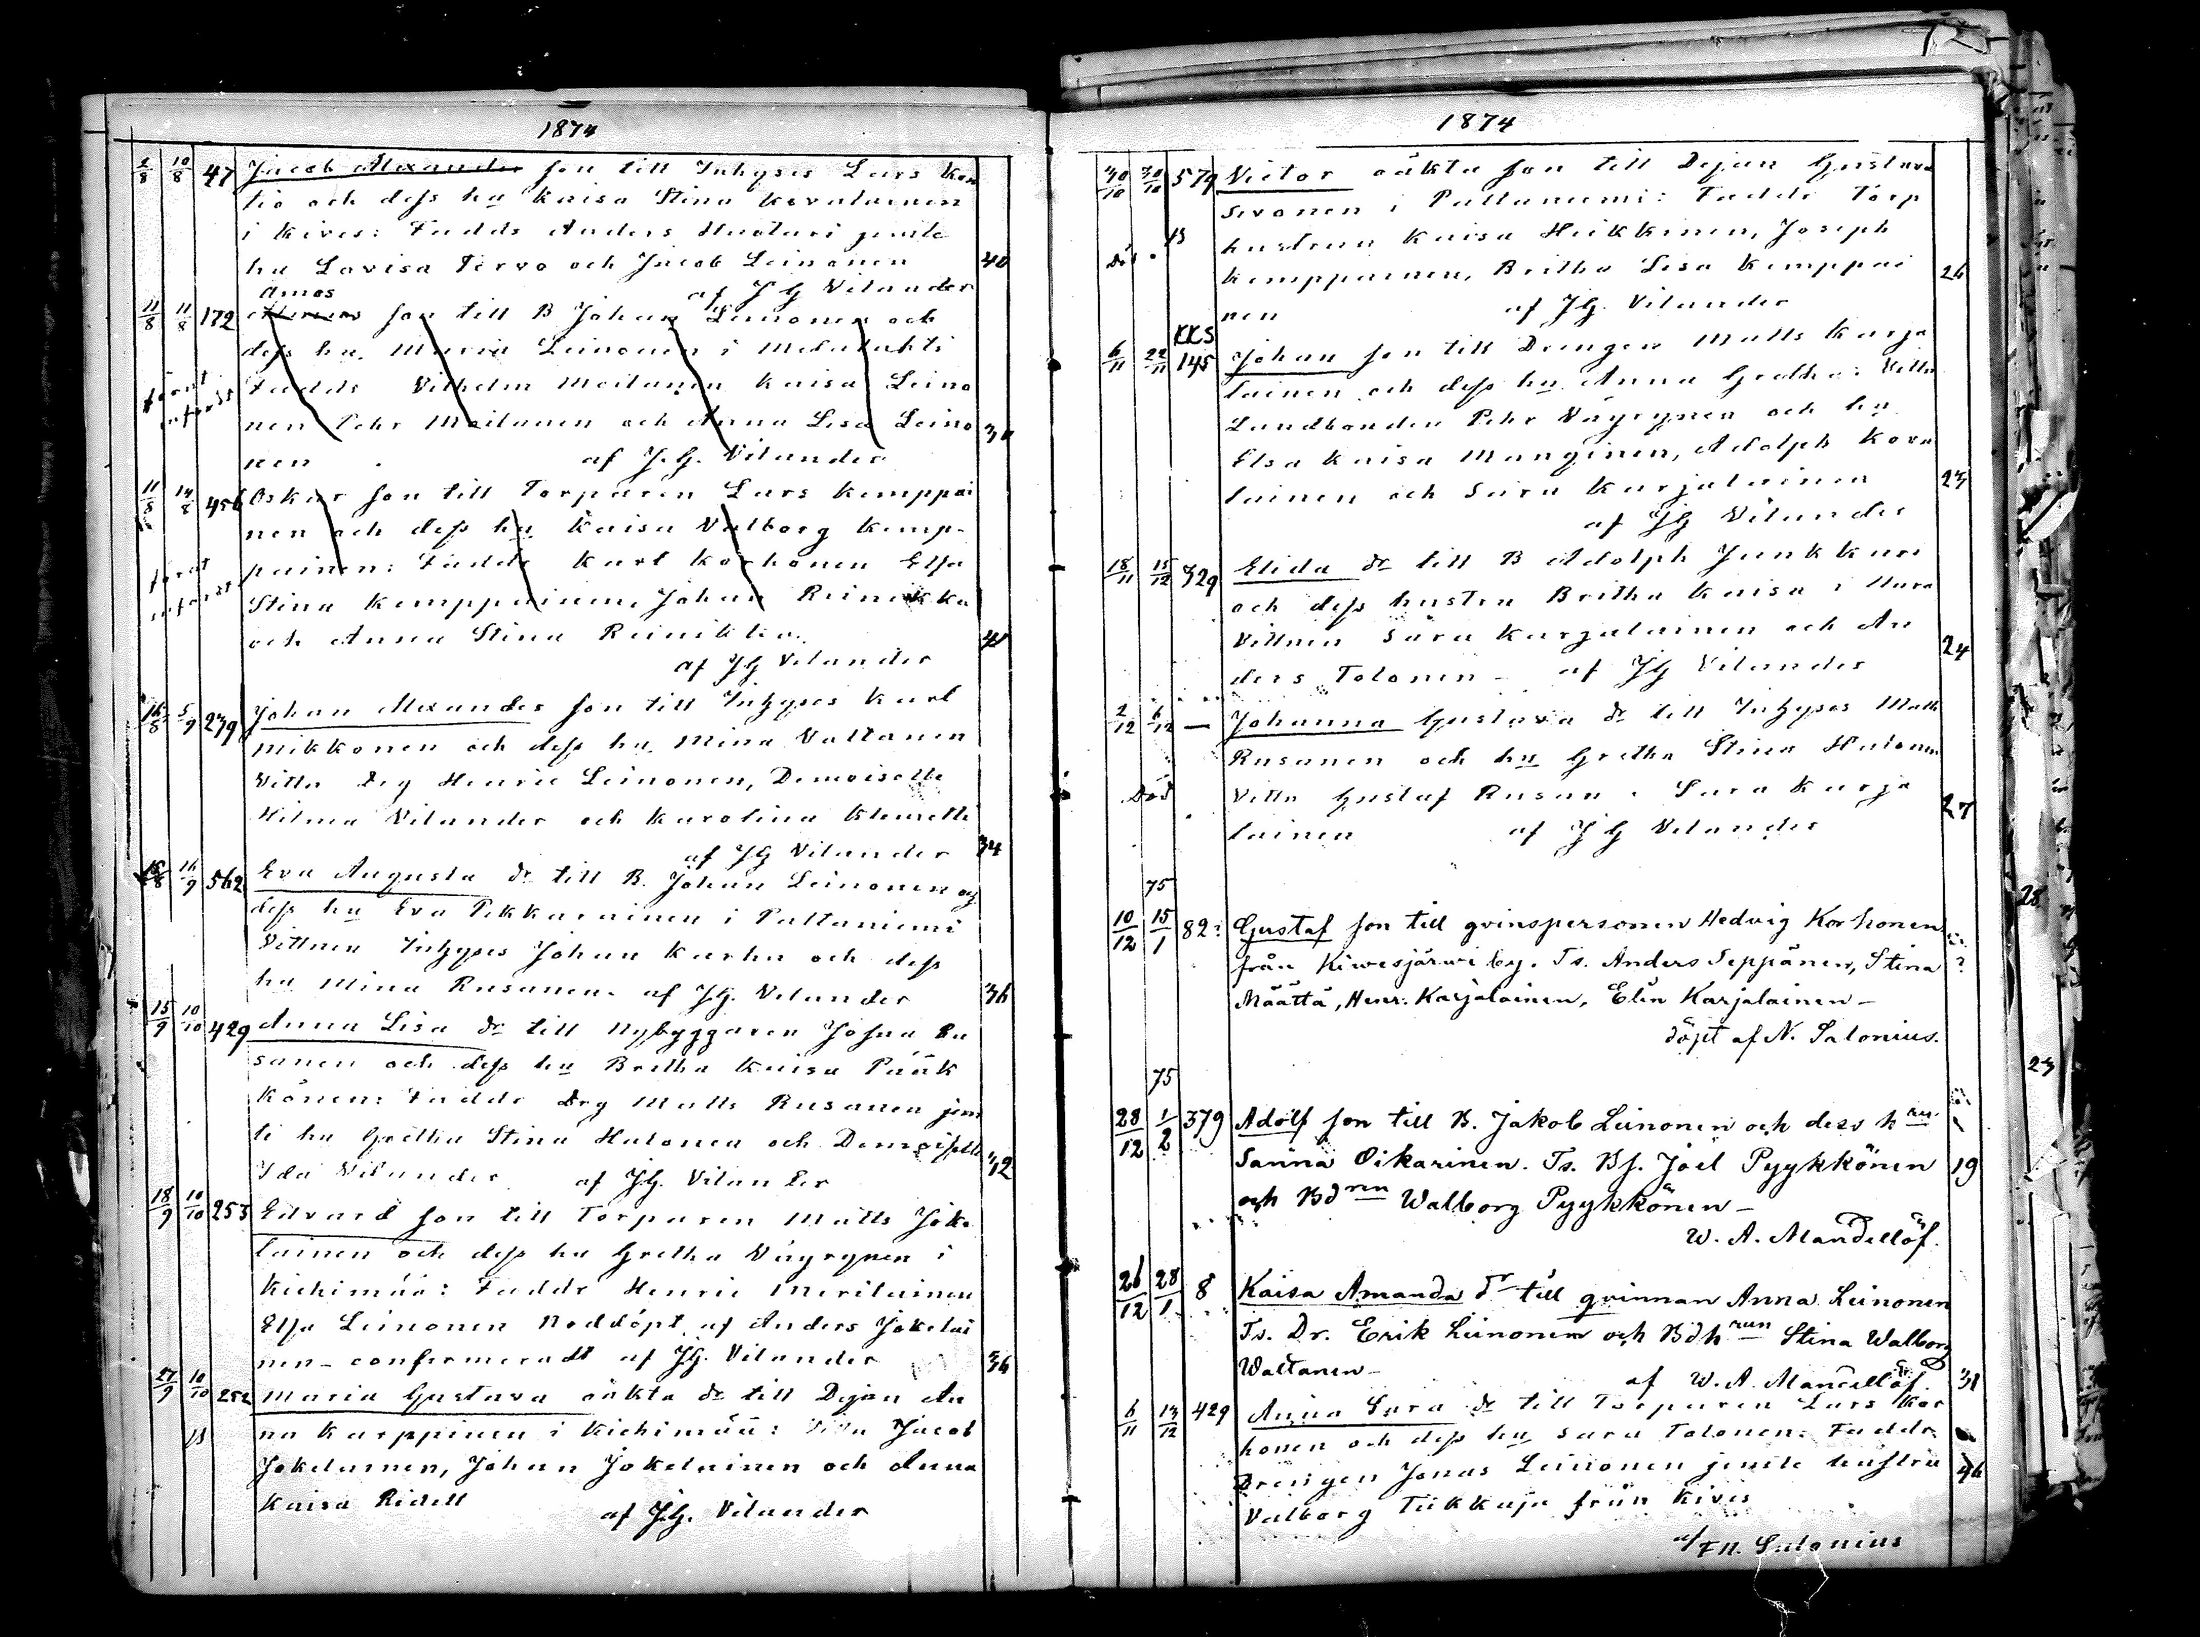 1874
2/8 10/8 47 Jacob Alexander son till Inhyses Lars Kon
tio och dess hu Kaisa Stina Kovalainen
i Kives: Fadds Anders Huoturi jemte
hu Lovisa Tervo och Jacob Leinonen 40
af JG Vilander
Amos
11/8 11/8 172 son till B Johan Leinonen och
dess hu. Maria Leinonen i Melalahti
Fadds Vilhelm Moilanen Kaisa Leino
nen Pehr Moilanen och Anna Lisa Leino
nen af J.G. Vilander
11/8 14/8 456 Oskar son till Torparen Lars Kemppai
nen och dess hu Kaisa Valborg Kemp-
painen: Faddr Karl Korhonen Elsa
Stina Kemppainen, Johan Reinikka
och Anna Stina Reinikka
af JG Vilander
16/8 5/9 239 Johan Alexander son till Inhyses Karl
Mikkonen och dess hu Mina Valtanen
Vittn Drg Henric Leinonen, Demoiselle
Hilma Vilander och Karolina Klemetti
af JG Vilander 34
16/9 562 Eva Augusta dr till B. Johan Leinonen og
dess hu Eva Pikkarainen i Paltaniemi
Vittnen Inhyses Johan Karhu och dess
hu Mina Rusanen. af J.G. Vilander 36
15/9 10/10 429 Anna Lisa dr till Nybyggaren Johan Ru
sanen och dess hu Britha Kaisa Pääk
könen: Faddr Drg Matts Rusanen jem
te hu Gretha Stina Halonen och Demoiselle
Ida Vilander af J.G. Vilander 42
18/9 10/10 253 Edvard son till Torparen Matts Joke
lainen och dess hu Gretha Väyrynen i
Kiehimää: Faddr Henric Meriläinen
Elsa Leinonen Noddöpt af Anders Jokelai
nen - confirmeradt af JG. Vilander 36
27/9 10/10 252 Maria Gustava oäkta dr till Dejan An
na Karppinen i Kiehimää: Jacob
Jokelainen, Johan Jokelainen och Anna
Kaisa Ridell af J.G. Vilander
1874
30/10 30/10 579 Victor oäkta son till Dejan Gustava
Sivonen i Paltaniemi: Faddr Torp
hustrun Kaisa Heikkinen, Joseph
Kemppainen, Britha Lisa Kemppai 26
nen af JG. Vilander
KKS
6/11 22/11 145 Johan son till Drengen Matts Karja
lainen och dess hu Anna Gretha: Vittn
Landbonden Pehr Väyrynen och hu
Elsa Kaisa Manginen, Adolph Kova
lainen och Sara Karjalainen 23
af JG Vilander
18/11 15/12 329 Elida dr till B Adolph Junkkari
och dess hustru Britha Kaisa i Vara
Vittnen Sara Karjalainen och An
ders Tolonen - af JG Vilander 24
2/12 6/12 — Johanna Gustava dr till Inhyses Matts
Rusanen och hu Gretha Stina Halonen
Död Vittn Gustaf Rusan . Sara Karja
lainen af JG Vilander 27
75
10/12 15/1 82: Gustaf son till qvinspersonen Hedvig Korhonen
från Kiwesjärwi by. Ts. Anders Seppänen, Stina ?
Määttä, Henr. Karjalainen, Elin Karjalainen -
döpt af N. Salonius.
75
28/12 1/2 379 Adolf son till B. Jakob Leinonen och dess hru
Sanna Oikarinen. Ts. Bs. Joel Pyykkönen 19
och Bdren Walborg Pyykkönen -
W. A. Mandellöf.
26/12 28/1 8 Kaisa Amanda dr till qvinnan Anna Leinonen
Ts. Dr. Erik Leinonen och Bdhrun Stina Walborg
Waltanen -
af W. A. Mandellöf. 31
6/11 13/12 429 Anna Sara dr till Torparen Lars Kor
honen och dess hu Sara Tolonen: Faddr.
Drengen Jonas Leinonen jemte hustru
Valborg Tiikkaja från Kives
af F.N. Salonius
28
23